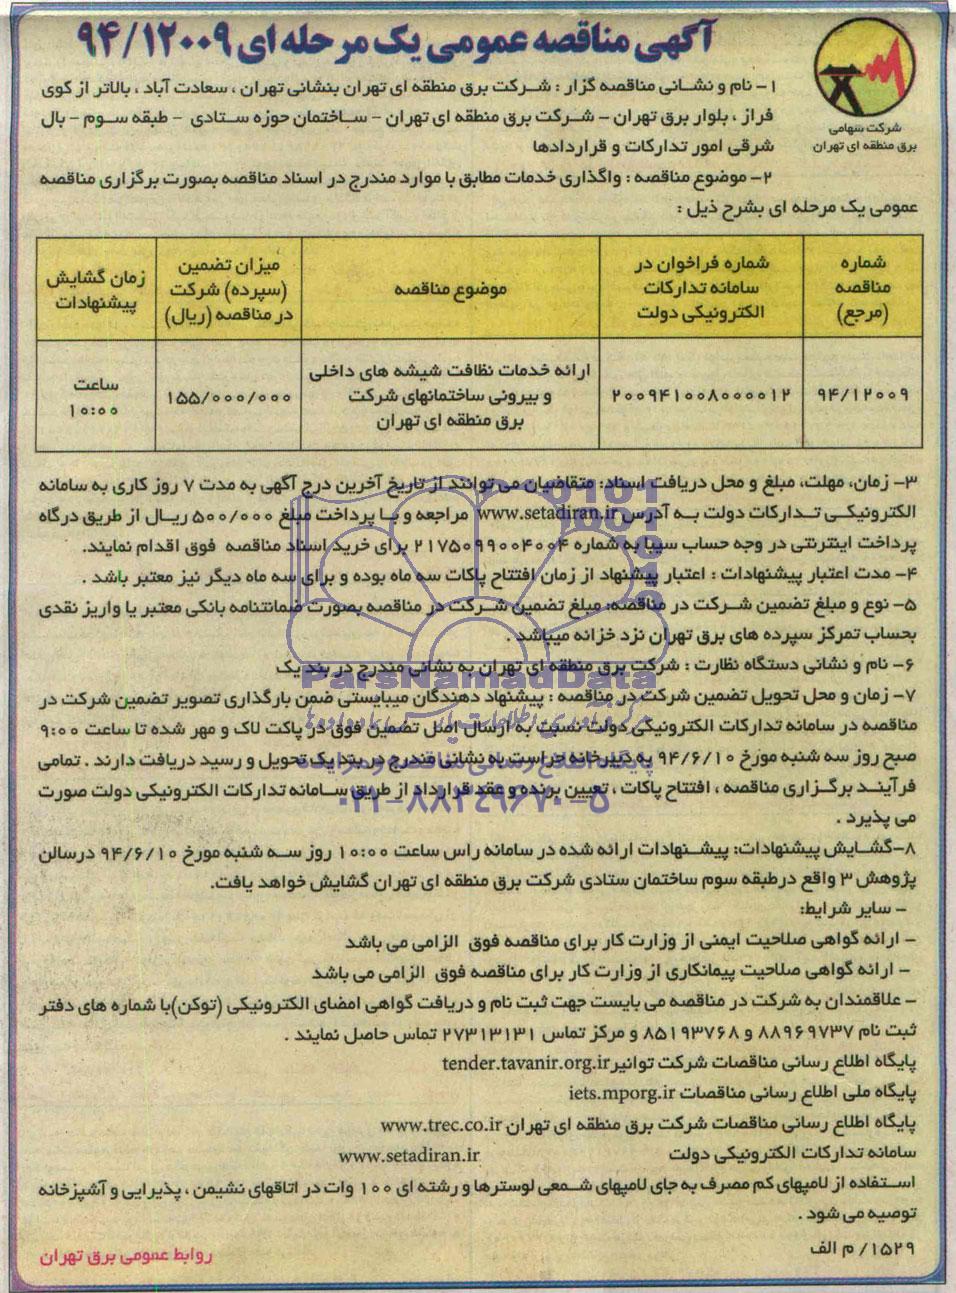 آگهی مناقصه عمومی یک مرحله ای ۹۴/۱۲۰۰۹
شرکت سهامی
برق منطقه ای تهران
۱- نام و نشانی مناقصه گزار : شرکت برق منطقه ای تهران بنشانی تهران ، سعادت آباد ، بالاتر از کوی
فراز ، بلوار برق تهران - شرکت برق منطقه ای تهران - ساختمان حوزه ستادی - طبقه سوم - بال
شرقی امور تدارکات و قراردادها
۲- موضوع مناقصه : واگذاری خدمات مطابق با موارد مندرج در اسناد مناقصه بصورت برگزاری مناقصه
عمومی یک مرحله ای بشرح ذیل :
شماره مناقصه (مرجع)
شماره فراخوان در سامانه تدارکات الکترونیکی دولت
موضوع مناقصه
میزان تضمین (سپرده) شرکت در مناقصه (ریال)
زمان گشایش پیشنهادات
۹۴/۱۲۰۰۹
۲۰۰۹۴۱۰۰۸۰۰۰۰۱۲
ارائه خدمات نظافت شیشه های داخلی
و بیرونی ساختمانهای شرکت
برق منطقه ای تهران
۱۵۵/۰۰۰/۰۰۰
ساعت
۱۰:۰۰
۳- زمان، مهلت، مبلغ و محل دریافت اسناد: متقاضیان می توانند از تاریخ آخرین درج آگهی به مدت ۷ روز کاری به سامانه
الکترونیکی تدارکات دولت به آدرس www.setadiran.ir مراجعه و با پرداخت مبلغ ۵۰۰/۰۰۰ ریال از طریق درگاه
پرداخت اینترنتی در وجه حساب سیبا به شماره ۲۱۷۵۰۹۹۰۰۴۰۰۴ برای خرید اسناد مناقصه فوق اقدام نمایند.
۴- مدت اعتبار پیشنهادات : اعتبار پیشنهاد از زمان افتتاح پاکات سه ماه بوده و برای سه ماه دیگر نیز معتبر باشد .
۵- نوع و مبلغ تضمین شرکت در مناقصه: مبلغ تضمین شرکت در مناقصه بصورت ضمانتنامه بانکی معتبر یا واریز نقدی
بحساب تمرکز سپرده های برق تهران نزد خزانه میباشد .
۶- نام و نشانی دستگاه نظارت : شرکت برق منطقه ای تهران به نشانی مندرج در بند یک
۷- زمان و محل تحویل تضمین شرکت در مناقصه : پیشنهاد دهندگان میبایستی ضمن بارگذاری تصویر تضمین شرکت در
مناقصه در سامانه تدارکات الکترونیکی دولت نسبت به ارسال اصل تضمین فوق در پاکت لاک و مهر شده تا ساعت ۹:۰۰
صبح روز سه شنبه مورخ ۹۴/۶/۱۰ به دبیرخانه حراست به نشانی مندرج در بند یک تحویل و رسید دریافت دارند . تمامی
فرآیند برگزاری مناقصه ، افتتاح پاکات ، تعیین برنده و عقد قرارداد از طریق سامانه تدارکات الکترونیکی دولت صورت
می پذیرد .
۸-گشایش پیشنهادات: پیشنهادات ارائه شده در سامانه راس ساعت ۱۰:۰۰ روز سه شنبه مورخ ۹۴/۶/۱۰ درسالن
پژوهش ۳ واقع درطبقه سوم ساختمان ستادی شرکت برق منطقه ای تهران گشایش خواهد یافت.
- سایر شرایط:
- ارائه گواهی صلاحیت ایمنی از وزارت کار برای مناقصه فوق الزامی می باشد
- ارائه گواهی صلاحیت پیمانکاری از وزارت کار برای مناقصه فوق الزامی می باشد
- علاقمندان به شرکت در مناقصه می بایست جهت ثبت نام و دریافت گواهی امضای الکترونیکی (توکن)با شماره های دفتر
ثبت نام ۸۸۹۶۹۷۳۷ و ۸۵۱۹۳۷۶۸ و مرکز تماس ۲۷۳۱۳۱۳۱ تماس حاصل نمایند .
پایگاه اطلاع رسانی مناقصات شرکت توانیرtender.tavanir.org.ir
پایگاه ملی اطلاع رسانی مناقصات iets.mporg.ir
پایگاه اطلاع رسانی مناقصات شرکت برق منطقه ای تهران www.trec.co.ir
سامانه تدارکات الکترونیکی دولت www.setadiran.ir
استفاده از لامپهای کم مصرف به جای لامپهای شمعی لوسترها و رشته ای ۱۰۰ وات در اتاقهای نشیمن ، پذیرایی و آشپزخانه
توصیه می شود .
۱۵۲۹/ م الف
روابط عمومی برق تهران
ParsNamadData
پایگاه اطلاع رسانی مناقصه و مزایده
۰۲۱-۸۸۳۴۹۶۷۰-۵